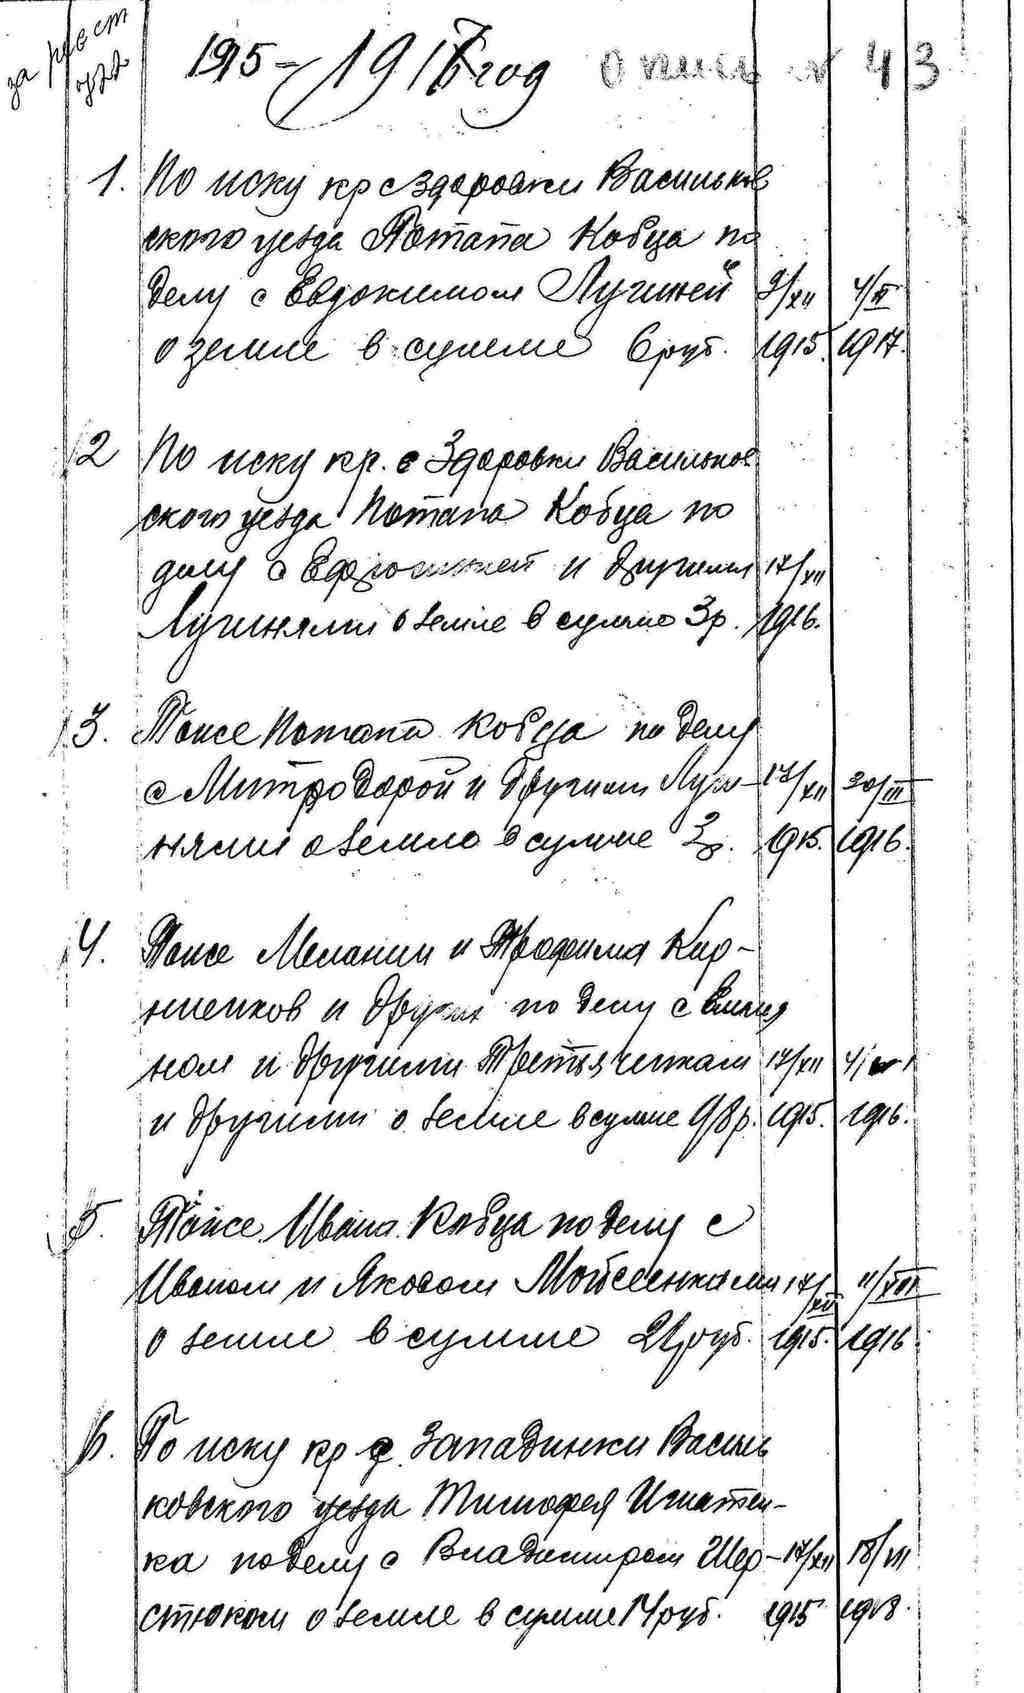 за реест
1915-1916 год опись N 43
1. По иску кр с Здоровки Васильков
ского уезда Потапа Кобца по
делу с Евдокимом Лугиней 9/XII 4/II
о земле в сумме 6 руб. 1915. 1917.
2 По иску кр. с Здоровки Васильков
ского уезда Потапа Кобца по
делу с Ефросинией и другими 17/XII
Лугинями о земле в сумме 3р. 1916.
3. Тоже Потапа Кобца по делу
с Митродорой и другими Луги- 17/XII 30/III
нями о земле в сумме 3р. 1915. 1916.
4. Тоже Мелании и Трофима Кор-
ниенков и других по делу с
ном и другими Третьяченками 17/XII
и другими о земле в сумме 98р. 1915. 1916.
5. Тоже Ивана Кобца по делу с
Иваном и Яковом Мойсеенками 17/XII
о земле в сумме руб. 1915. 1916.
6. По иску кр д. Западинки Василь
ковского уезда Тимофея Игнатен-
ка по делу с Владимиром Шер- 17/XII 18/VII
стюком о земле в сумме 14 руб. 1915 1918.